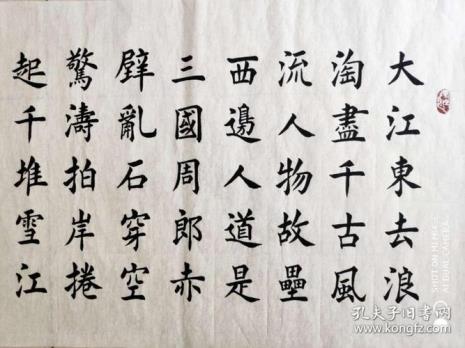 大江東去浪
淘盡千古風
流人物故壘
西邊人道是
三國周郎赤
壁亂石穿空
驚濤拍岸捲
起千堆雪江
SHOT ON MI MIX
AI DUAL CAMERA
孔夫子旧书网
www.kongfz.com